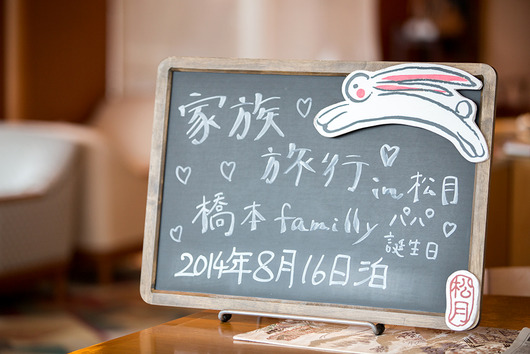 家族
旅行 in 松月
橋本 familly パパ
誕生日
2014年8月16日泊
松月